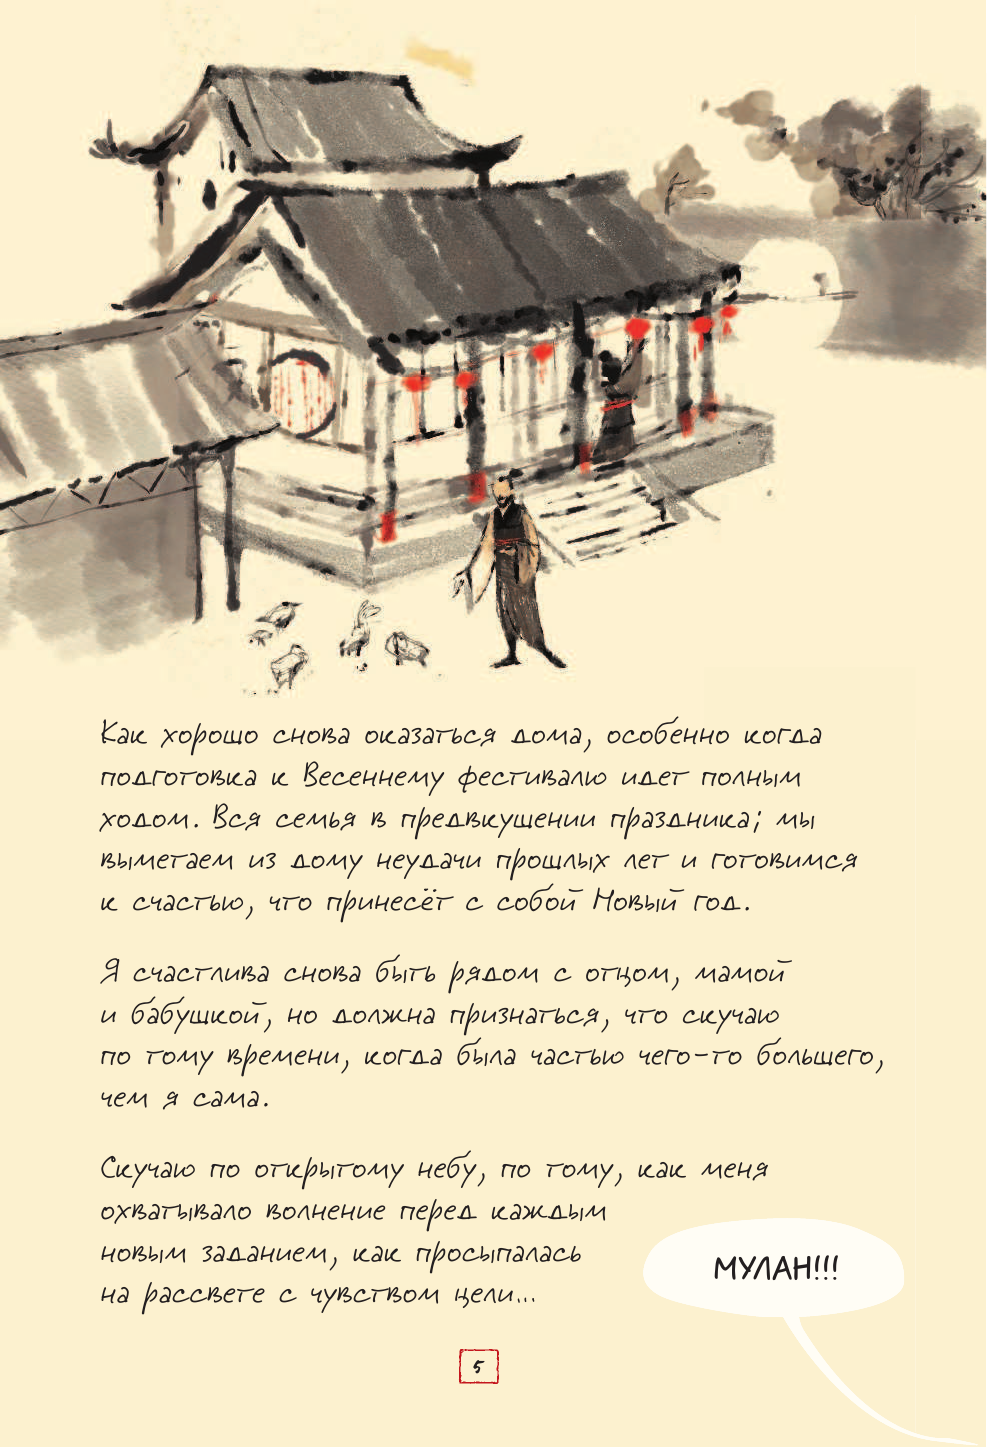 Как хорошо снова оказаться дома, особенно когда
подготовка к Весеннему фестивалю идет полным
ходом. Вся семья в предвкушении праздника; мы
выметаем из дому неудачи прошлых лет и готовимся
к счастью, что принесёт с собой Новый год.
Я счастлива снова быть рядом с отцом, мамой
и бабушкой, но должна признаться, что скучаю
по тому времени, когда была частью чего-то большего,
чем я сама.
Скучаю по открытому небу, по тому, как меня
охватывало волнение перед каждым
новым заданием, как просыпалась
на рассвете с чувством цели...
МУЛАН!!!
5